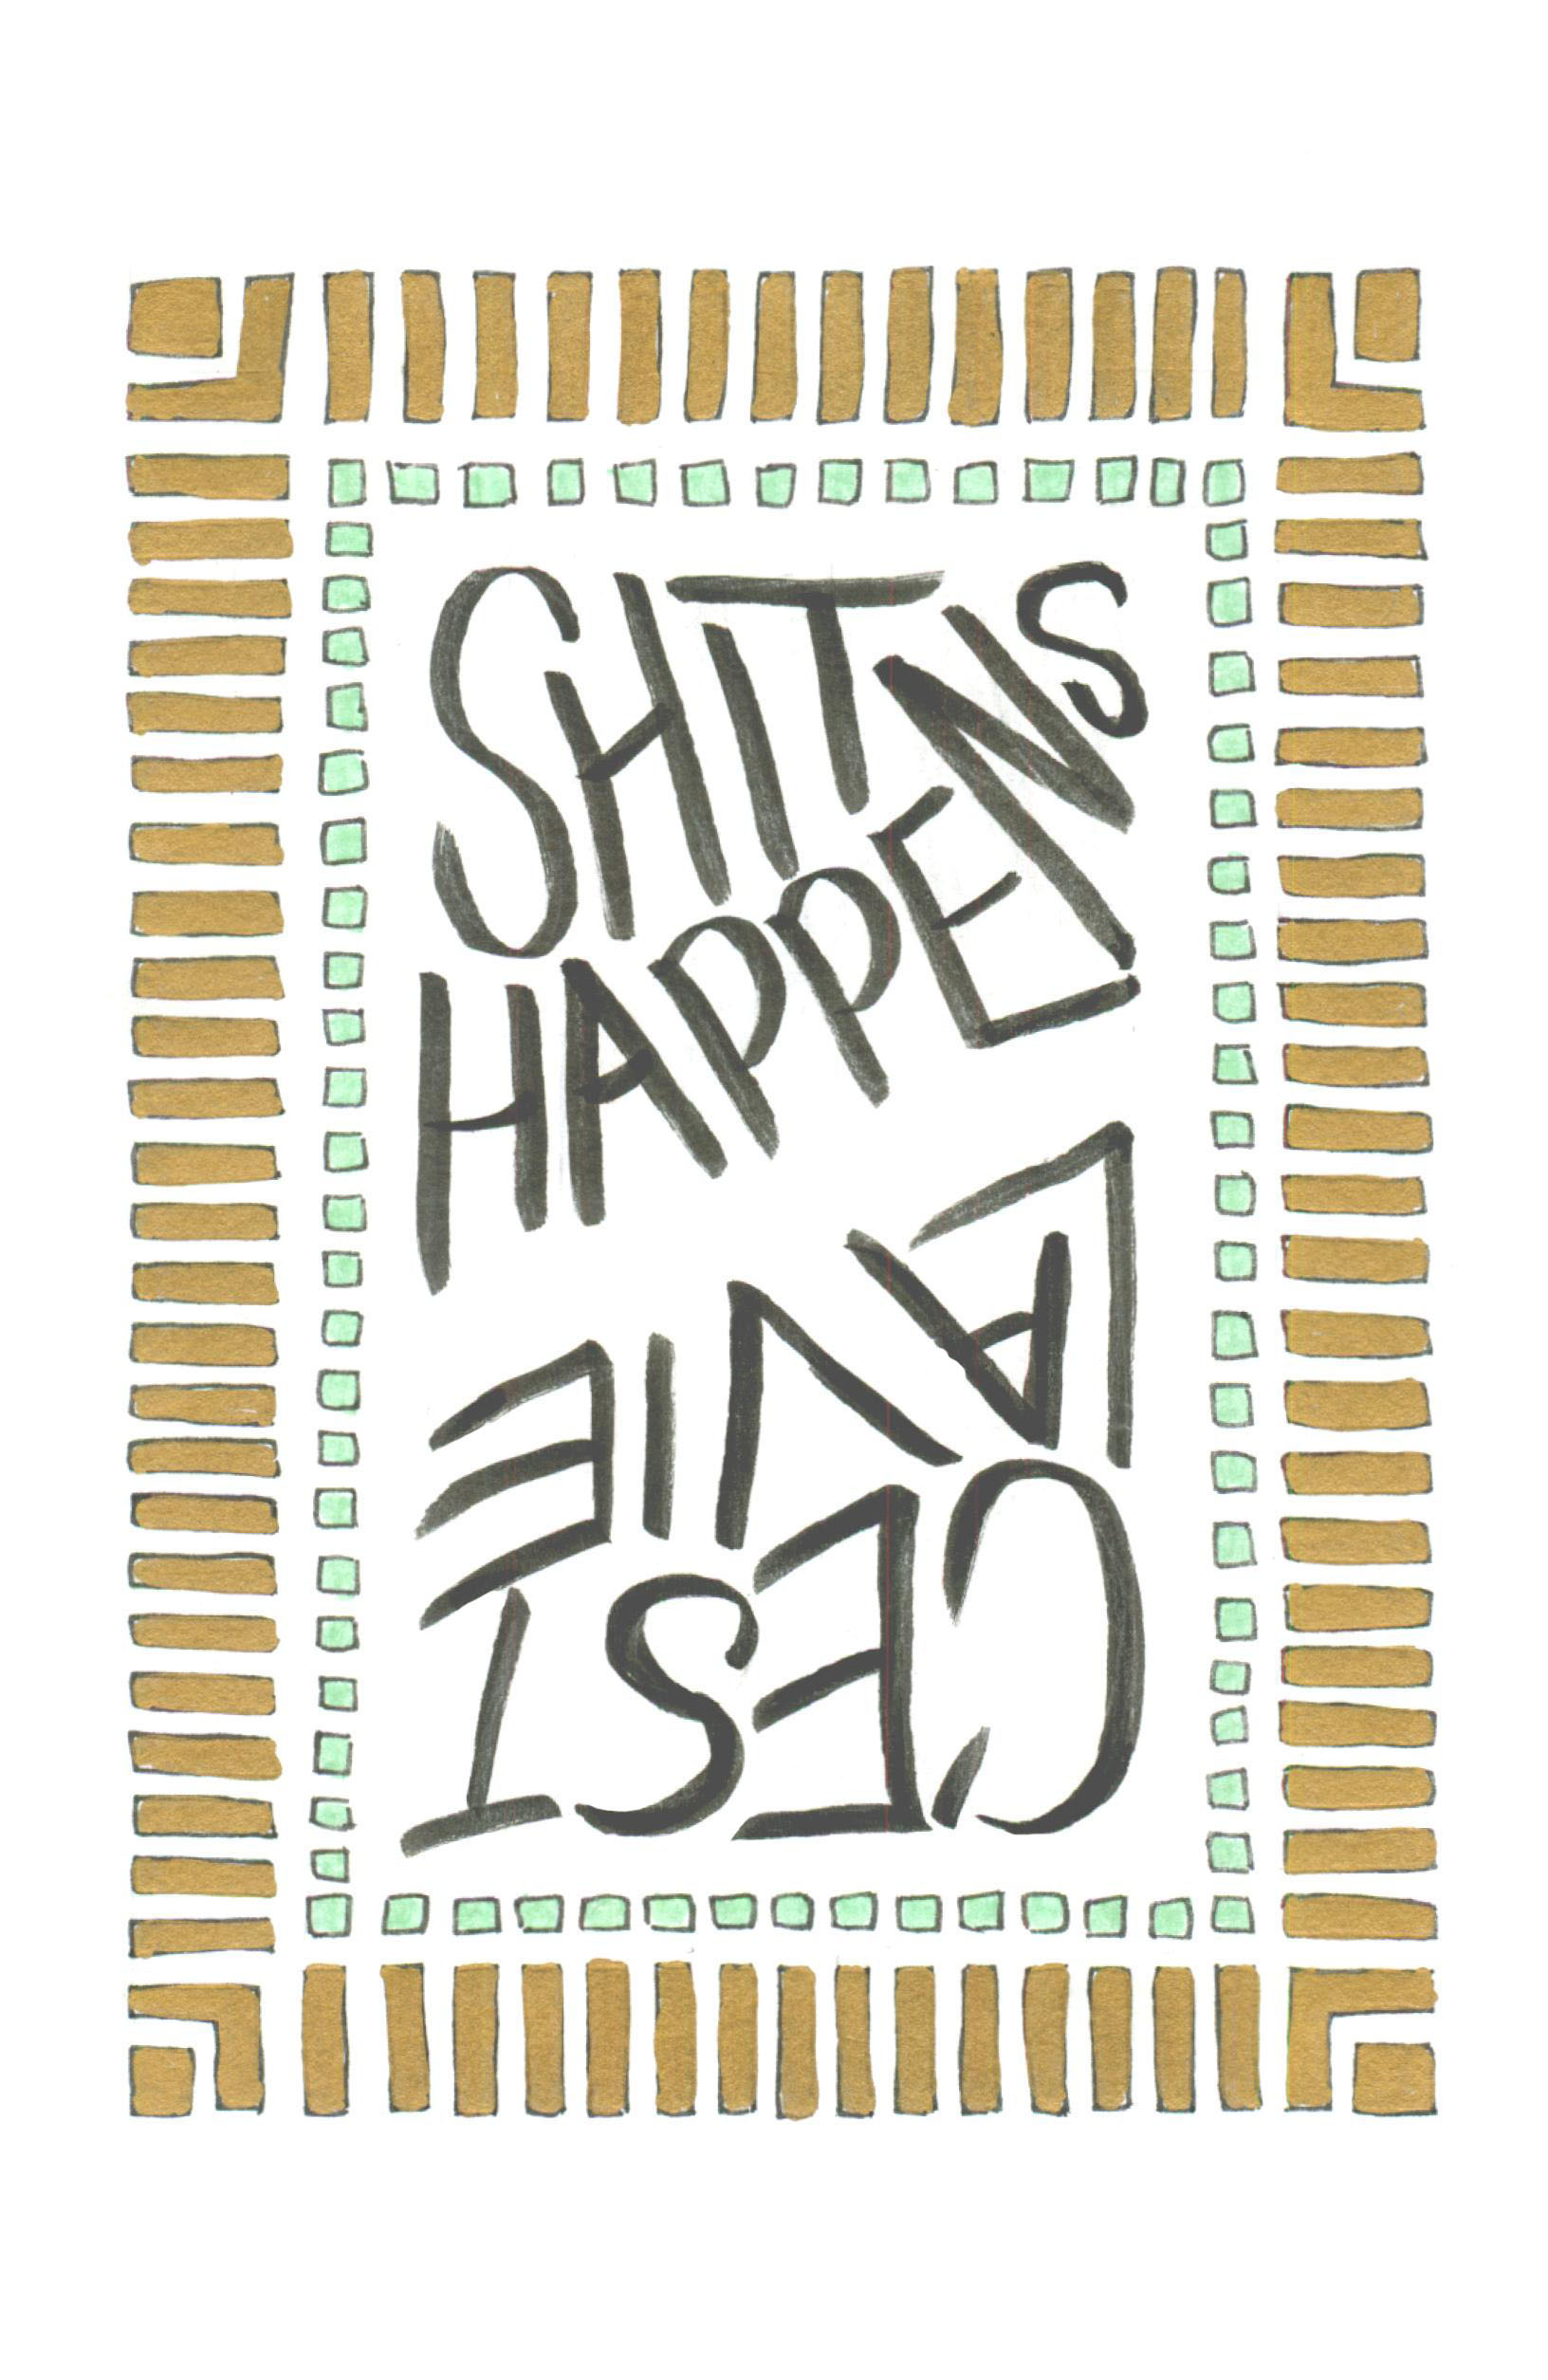 SHIT
HAPPENS
C'EST
LA VIE